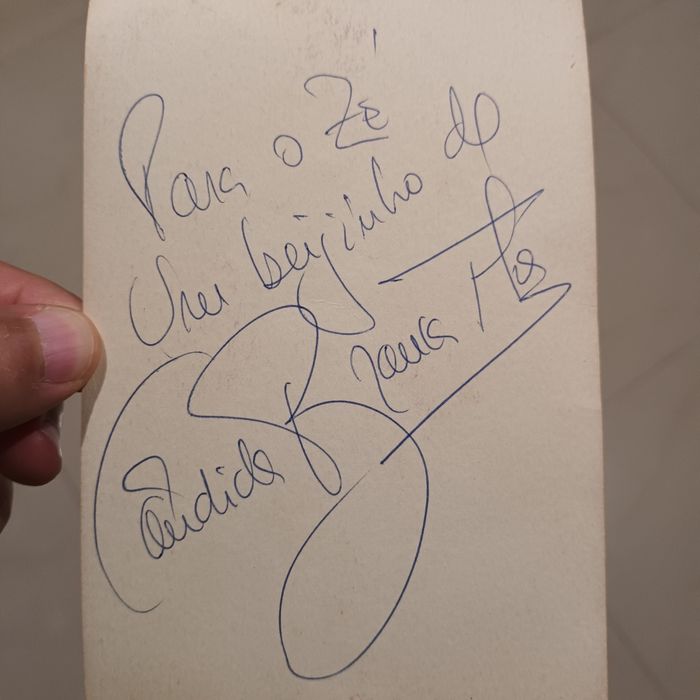 Para o Zé
Um beijinho do
Cândida Branca Flor